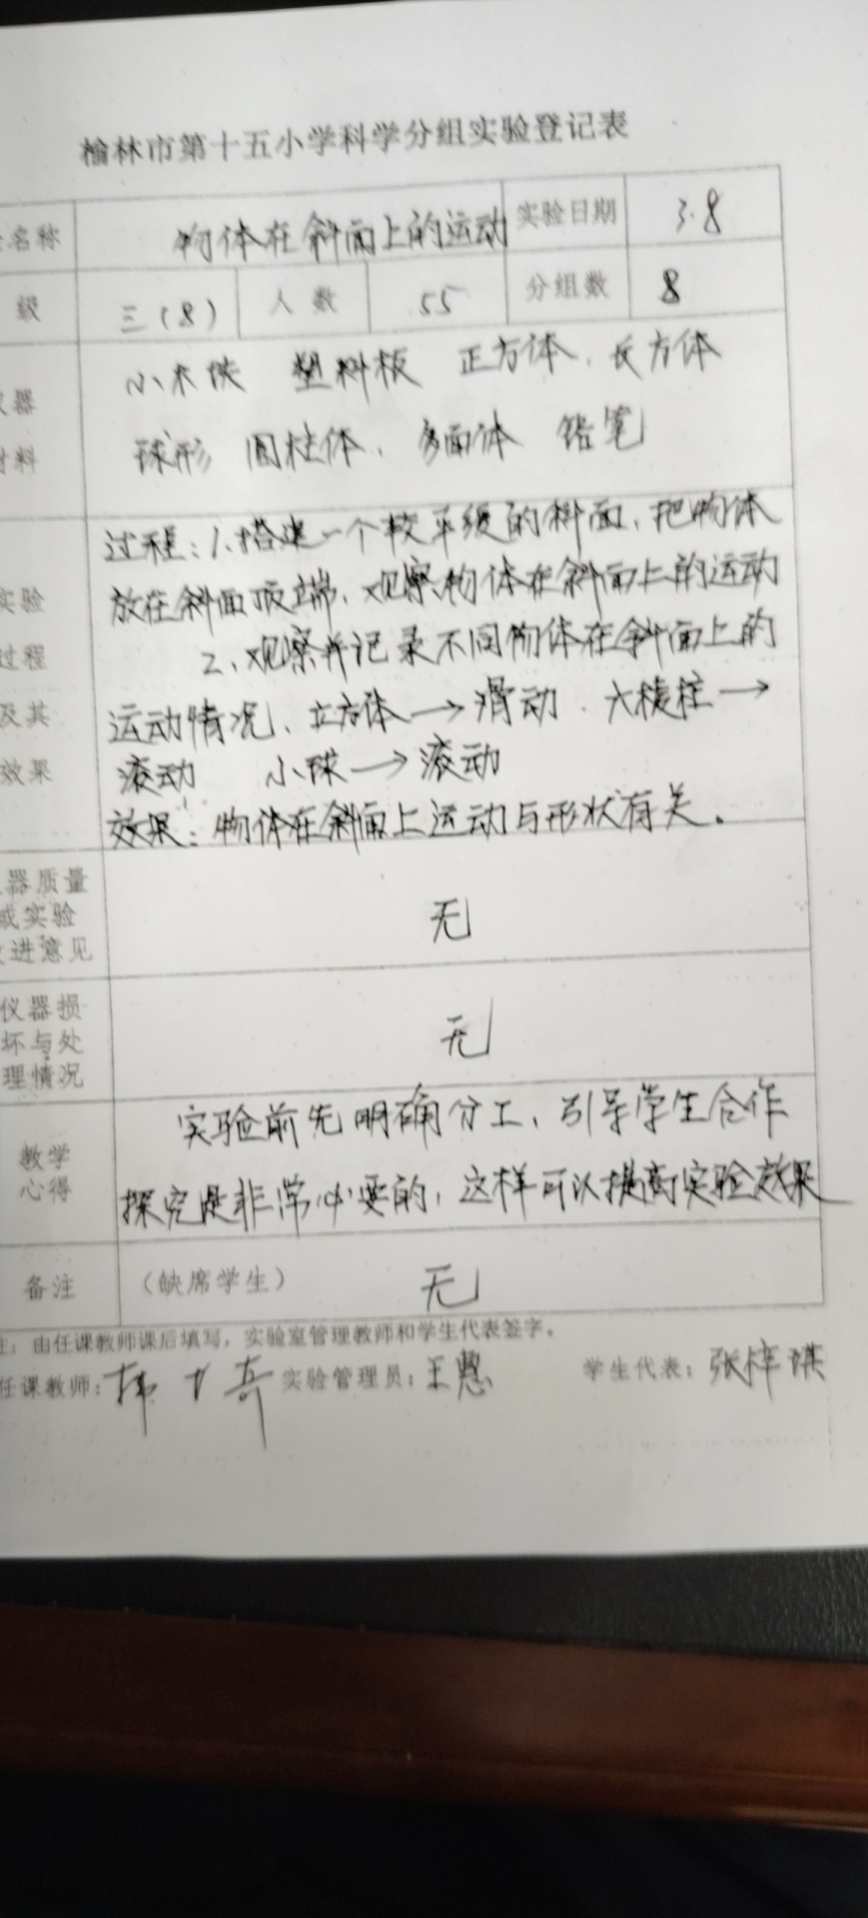 榆林市第十五小学科学分组实验登记表
名称 物体在斜面上的运动 实验日期 3.8
级 三(8) 人数 55 分组数 8
小木块 塑料板 正方体、长方体
器
材料 球形 圆柱体、多面体 铅笔
过程:1、搭建一个较平缓的斜面、把物体
实验 放在斜面顶端、观察物体在斜面上的运动
过程 2、观察并记录不同物体在斜面上的
及其 运动情况、立方体→滑动、六棱柱→
效果 滚动 小球→滚动
效果:物体在斜面上运动与形状有关。
器质量
或实验 无
进意见
仪器损
坏与处 无
理情况
实验前先明确分工、引导学生合作
教学
心得 探究是非常必要的,这样可以提高实验效果
备注 (缺席学生) 无
注:由任课教师课后填写,实验室管理教师和学生代表签字。
任课教师: 实验管理员:王慧 学生代表:张梓琪